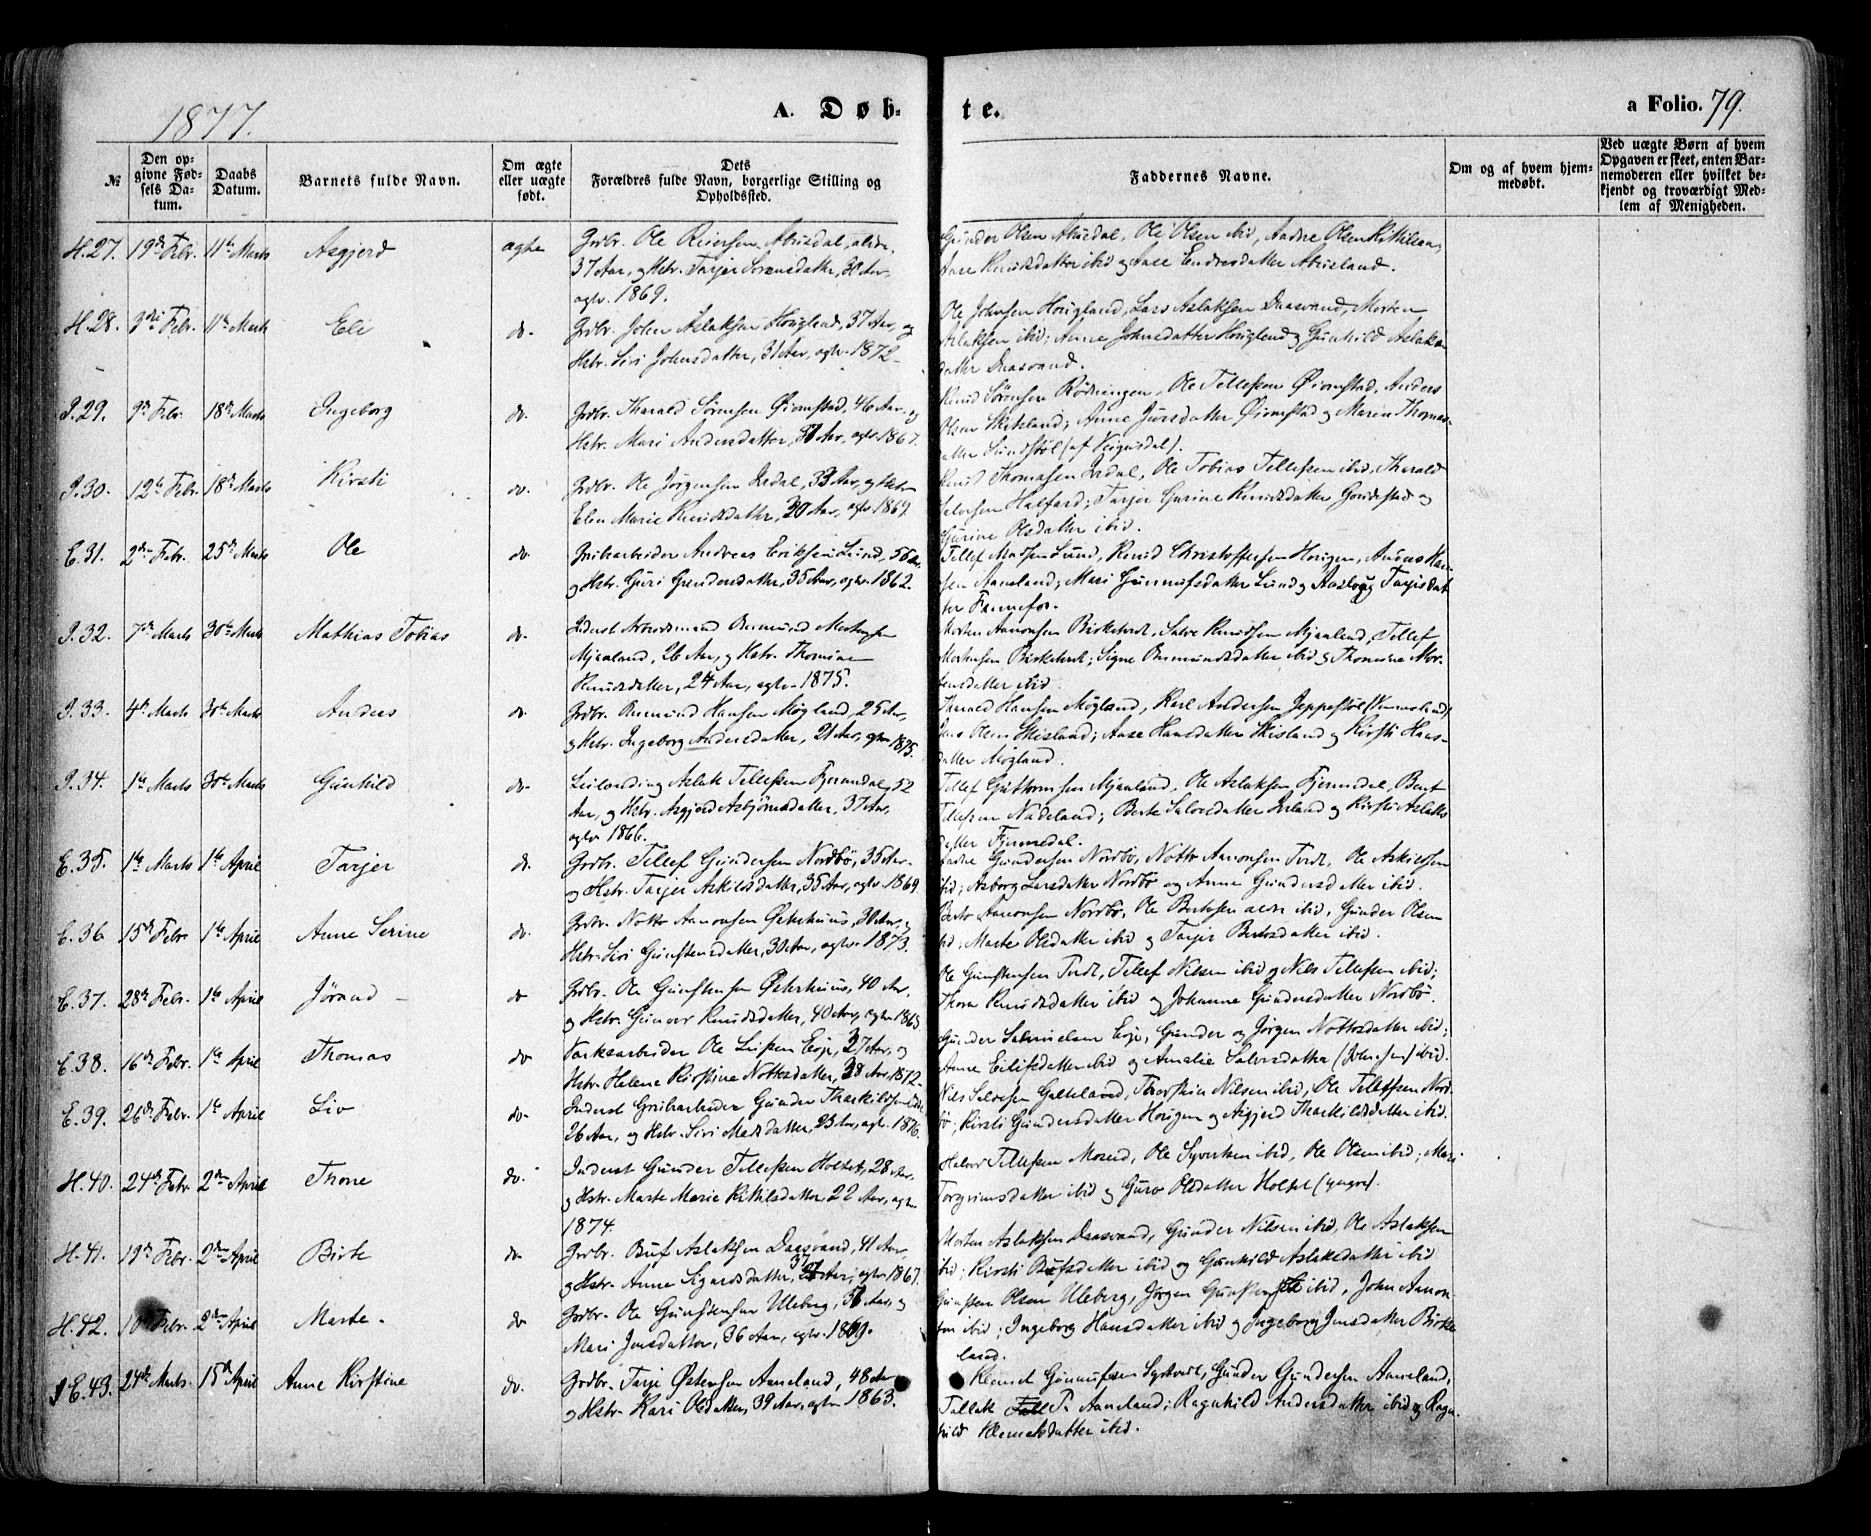 1877.
A. Døb- te.
a Folio. 79.
№
Den op-
givne Fød-
sels Da-
tum.
Daabs
Datum.
Barnets fulde Navn.
Om ægte
eller uægte
født.
Dets
Forældres fulde Navn, borgerlige Stilling og
Opholdssted.
Faddernes Navne.
Om og af hvem hjem-
medøbt.
Ved uægte Børn af hvem
Opgaven er skeet, enten Bar-
nemoderen eller hvilket be-
kjendt og troværdigt Med-
lem af Menigheden.
H.27. 19de Febr. 11te Marts Asgjerd ægte Grdbr. Ole Reiersen Abusdal,
37 Aar, og Hstr. Tarjer Sorensdatter, 30 Aar,
agtv. 1869.
Gunder Olsen Abusdal, Ole Olsen ibid, Aadne Olsen
Aase Knudsdatter ibid og Aase Endresdatter Abusland.
H.28. 3die Febr. 11te Marts Eli do. Grdbr. John Aslaksen Hougland, 37 Aar, og
Hstr. Siri Johnsdatter, 31 Aar, agtv. 1872.
Ole Johnsen Hougland, Lars Aslaksen Daasvand, Morten
Aslaksen ibid; Anne Johnsdatter Hougland og Gunhild Aslaks-
datter Daasvand.
P.29. 9de Febr. 18de Marts Ingeborg do. Grdbr. Tharald Sørensen Øiomstad, 46 Aar, og
Hstr. Mari Andersdatter, 31 Aar, agtv. 1867.
Knud Sørensen Rødningen, Ole Tellefsen Øiomstad, Anders
Olsen Skisland; Anne Juvsdatter Øiomstad og Maren Thomas-
datter Sundstøl (af Veigusdal).
P.30. 12te Febr. 18de Marts Kirsti do. Grdbr. Ole Jørgensen Ivedal, 33 Aar, og Hstr.
Elen Marie Knudsdatter, 30 Aar, agtv. 1869.
Knud Thomasen Ivedal, Ole Tobias Tellefsen ibid, Tharald
Salvesen Halfard; Tarjer Gurine Knudsdatter og
Gurine Olsdatter ibid.
E.31. 2den Febr. 25de Marts Ole do. Grubearbeider Andreas Eriksen Lund, 56 Aar,
og Hstr. Guri Gundersdatter, 35 Aar, agtv. 1862.
Tellef Madsen Lund, Knud Christophersen Hougen, Anders Han-
sen Aaneland; Mari Gunnufsdatter Lund og Aaslaug Tarjeisdat-
ter Fannefos.
P.32. 7de Marts 30te Marts Mathias Tobias do. Inderst Bermund Mortensen
Mjaaland, 26 Aar, og Hstr. Thomine
Knudsdatter, 24 Aar, agtv. 1875.
Morten Aanonsen Birketvedt, Salve Knudsen Mjaaland, Tellef
Mortensen Birketvedt; Signe Bermundsdatter ibid og Thomine Mor-
tensdatter ibid.
P.33. 4de Marts 30te Marts Anders do. Grdbr. Bermund Hansen Møgland, 25 Aar,
og Hstr. Ingeborg Andersdatter, 21 Aar, agtv. 1875.
Tharald Hansen Møgland, Karl Andersen Jeppestøl (Vennesland)
Jens Olsen Skisland; Aase Hansdatter Skisland og Kirsti Hans-
datter Møgland.
P.34. 1ste Marts 30te Marts Gunhild do. Leilænding Aslak Tellefsen Fjermedal, 52
Aar, og Hstr. Asgjerd Asbjørnsdatter, 37 Aar,
agtv. 1866.
Tellef Guttormsen Mjaaland, Ole Aslaksen Fjermedal, Bent
Tellefsen Nadeland; Berte Salvesdatter Iveland og Kirsti Aslaks-
datter Fjermedal.
E.35. 1ste Marts 1ste April Tarjer do. Grdbr. Tellef Gundersen Nordbø, 35 Aar,
og Hstr. Tarjer Askildsdatter, 35 Aar, agtv. 1869.
Aadne Gundersen Nordbø, Notto Aanonsen Tvedt, Ole Askildsen
ibid; Asborg Larsdatter Nordbø og Anne Gundersdatter ibid.
E.36. 15de Febr. 1ste April Anne Serine do. Grdbr. Notto Aanonsen Østerhuus, 30 Aar, og
Hstr. Siri Gunstensdatter, 30 Aar, agtv. 1873.
Berto Aanonsen Nordbø, Ole Bertosen ældr. ibid, Gunder Olsen
ibid; Marte Olsdatter ibid og Tarjer Bertosdatter ibid.
E.37. 28de Febr. 1ste April Jørand do Grdbr. Ole Gunstensen Østerhuus, 40 Aar,
og Hstr. Gunvor Knudsdatter, 40 Aar, agtv. 1863
Ole Gunstensen Tvedt, Tellef Nilsen ibid og Nils Tellefsen ibid;
Thora Knudsdatter ibid og Johanne Gundersdatter Nordbø.
E.38. 16de Febr. 1ste April Thomas do Værksarbeider Ole Eeje, 27 Aar, og
Hstr. Helene Kirstine Nottosdatter, 38 Aar, 1872.
Gunder Salmuelsen Eeje, Gunder og Jørgen Nottosdatter ibid;
Anne Eilefsdatter ibid og Amalie Salvesdatter ibid.
E.39. 26de Febr. 1ste April Liv do. Inderst Grubearbeider Gunder Tharkildsen
26 Aar, og Hstr. Siri Madsdatter, 23 Aar, agtv. 1876.
Nils Salvesen Galteland, Thorstein Nilsen ibid, Ole Tellefsen Nord-
bø; Kirsti Gundersdatter Hougen og Asgjerd Tharkildsdatter ibid.
H.40. 24de Febr. 2den April Thone do. Inderst Gunder Tellefsen Holtet, 28 Aar,
og Hstr. Marte Marie Kittilsdatter, 22 Aar, agtv.
1874.
Halvor Tellefsen Moseid, Ole Syvertsen ibid, Ole Olsen ibid; Mari
Torgrimsdatter ibid og Guro Olsdatter Holtet (yngre).
H.41. 19de Febr. 2den April Birte do Grdbr. Buf Aslaksen Daasvand, 41 Aar,
og Hstr. Anne Sigurdsdatter, 37 Aar, agtv. 1867.
Morten Aslaksen Daasvand, Gunder Nilsen ibid, Ole Aslaksen
ibid; Kirsti Bufsdatter ibid og Gunhild Aslaksdatter ibid
H.42. 10de Febr. 2den April Marte. do Grdbr. Ole Gunstensen Uleberg, 51 Aar, og
Mari Jensdatter, 36 Aar, agtv. 1869.
Gunsten Olsen Uleberg, Jørgen Gunstensen ibid, John Aanon-
sen ibid; Ingeborg Hansdatter ibid og Ingeborg Jensdatter Birke-
land.
P E.43. 24de Marts 15de April Anne Kirstine do. Grdbr. Tarje Østensen Aaneland, 48 Aar
og Hstr. Kari Olsdatter, 39 Aar, agtv. 1863.
Klemet Gunnufsen Syrtveit, Gunder Gundersen Aaneland,
Tallak T. Aaneland; Ragnhild Andersdatter ibid og Ragn-
hild Klemetsdatter ibid.